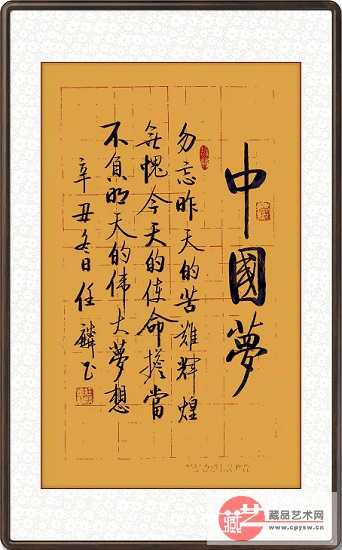 中國夢
勿忘昨天的苦難輝煌
無愧今天的使命擔當
不負明天的伟大夢想
辛丑冬日任麟书
藏艺
藏品艺术网
www.cpysw.cn